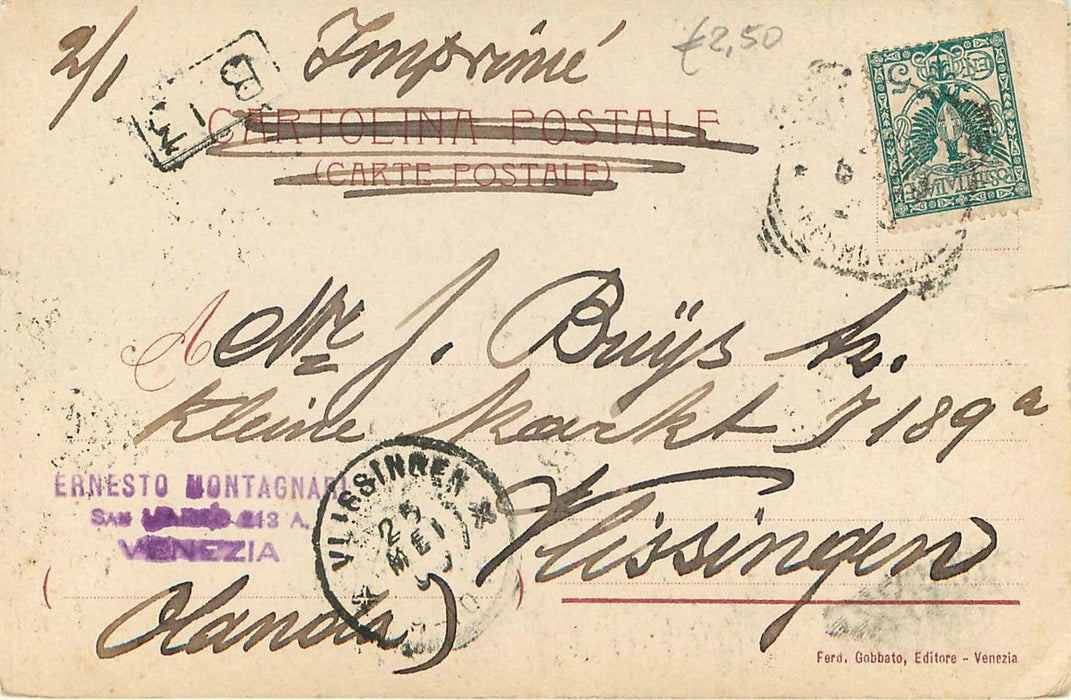 2/1 Imprimé £2,50
B 13
CARTOLINA POSTALE
(CARTE POSTALE)
5 5
A Mr J. Buÿs
Kleine Markt I 189 a
ERNESTO MONTAGNARI
SAN MARCO 213 A.
VENEZIA
VLISSINGEN
25 MEI
Vlissingen
(Olanda)
Ferd. Gobbato, Editore - Venezia